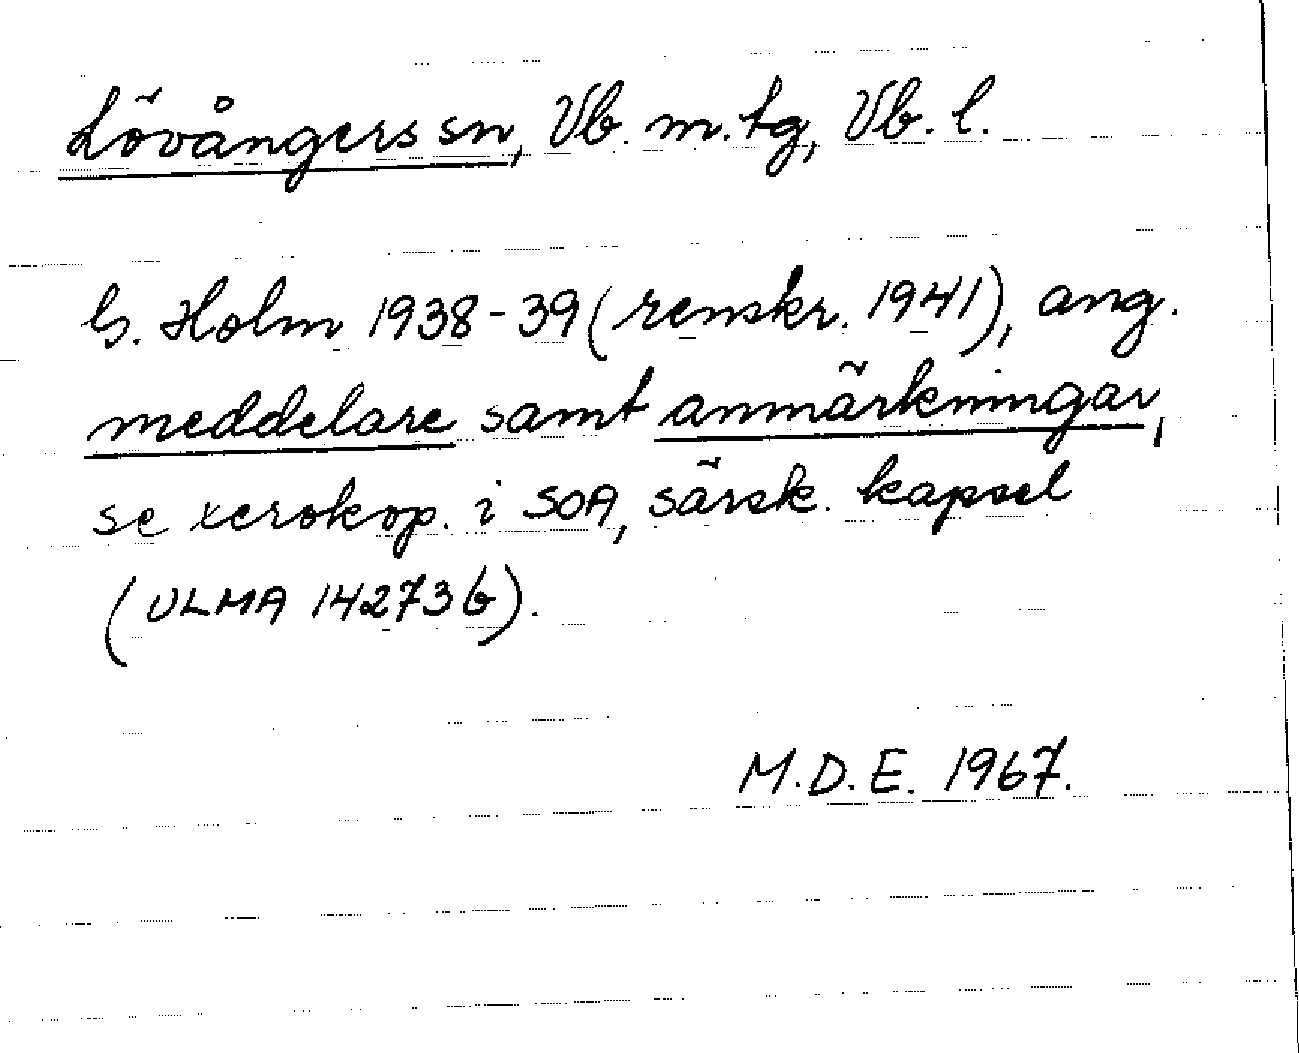 Lövångers sn, Vb. m. tg, Vb. l.
G. Holm 1938-39 (renskr. 1941), ang.
meddelare samt anmärkningar,
se xerokop. i SOA, särsk. kapsel
(ULMA 14273 b).
M.D.E. 1967.